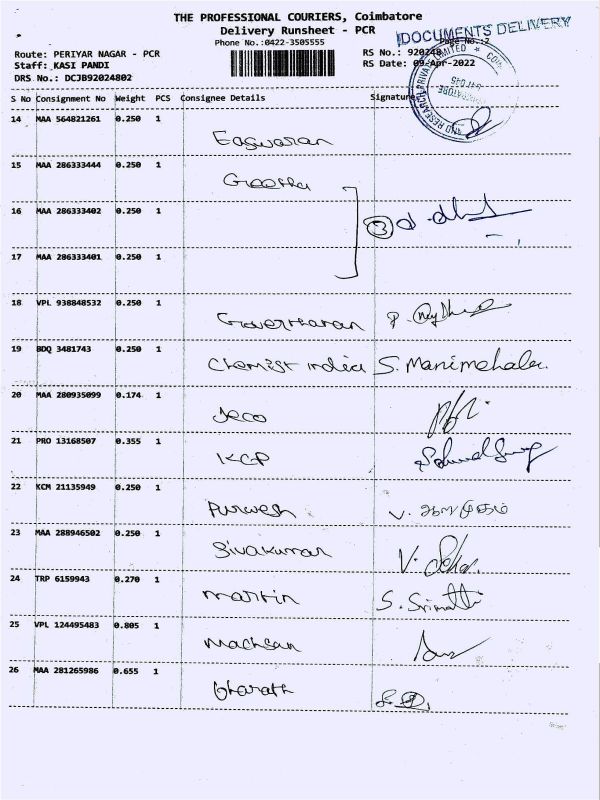 THE PROFESSIONAL COURIERS, Coimbatore
Delivery Runsheet - PCR
DOCUMENTS DELIVERY
Phone No.:0422-3505555
Page No.:2
Route: PERIYAR NAGAR - PCR
RS No.: 920248
Staff: KASI PANDI
RS Date: 09-Apr-2022
DRS No.: DCJB92024802
S No Consignment No Weight PCS Consignee Details Signature
14 MAA 564821261 0.250 1
Easwaran
15 MAA 286333444 0.250 1
Geetha
16 MAA 286333402 0.250 1
3
17 MAA 286333401 0.250 1
18 VPL 938848532 0.250 1
19 BDQ 3481743 0.250 1
Chemist India S. Manimehalai
20 MAA 280935099 0.174 1
Jeco
21 PRO 13168507 0.355 1
KCP
22 KCM 21135949 0.250 1
V.
23 MAA 288946502 0.250 1
Sivakumar
24 TRP 6159943 0.270 1
Martin S. Srimathi
25 VPL 124495483 0.805 1
26 MAA 281265986 0.655 1
bharath